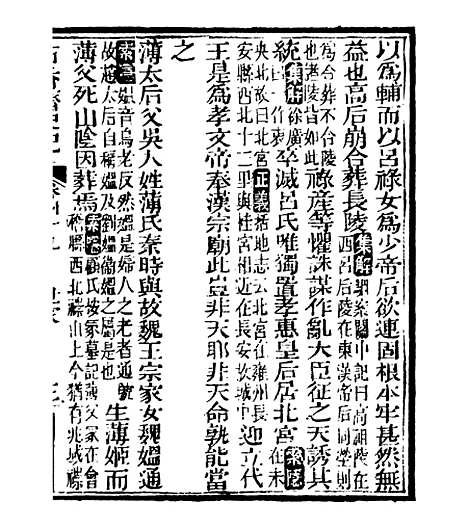 以為輔而以呂祿女為少帝后欲連固根本牢甚然無
益也高后崩合葬長陵集解駰案關中記曰高祖陵在西呂后陵在東漢帝后同塋則
為合葬不合陵也諸陵皆如此祿產等懼誅謀作亂大臣征之天誘其
統集解徐廣曰一作衷卒滅呂氏唯獨置孝惠皇后居北宮索隱在未
央北故曰北宮正義括地志云北宮在雍州長安縣西北十三里與桂宮相近在長安故城中迎立代
王是為孝文帝奉漢宗廟此豈非天耶非天命孰能當
之
薄太后父吳人姓薄氏秦時與故魏王宗家女魏媼通
索隱媼音烏老反然媼是婦人之老者通號故趙太后自稱媼及劉媼衞媼之屬是也生薄姬而
薄父死山陰因葬焉索隱顧氏按冢墓記薄父冢在會稽縣西北襟山上今猶有兆域襟